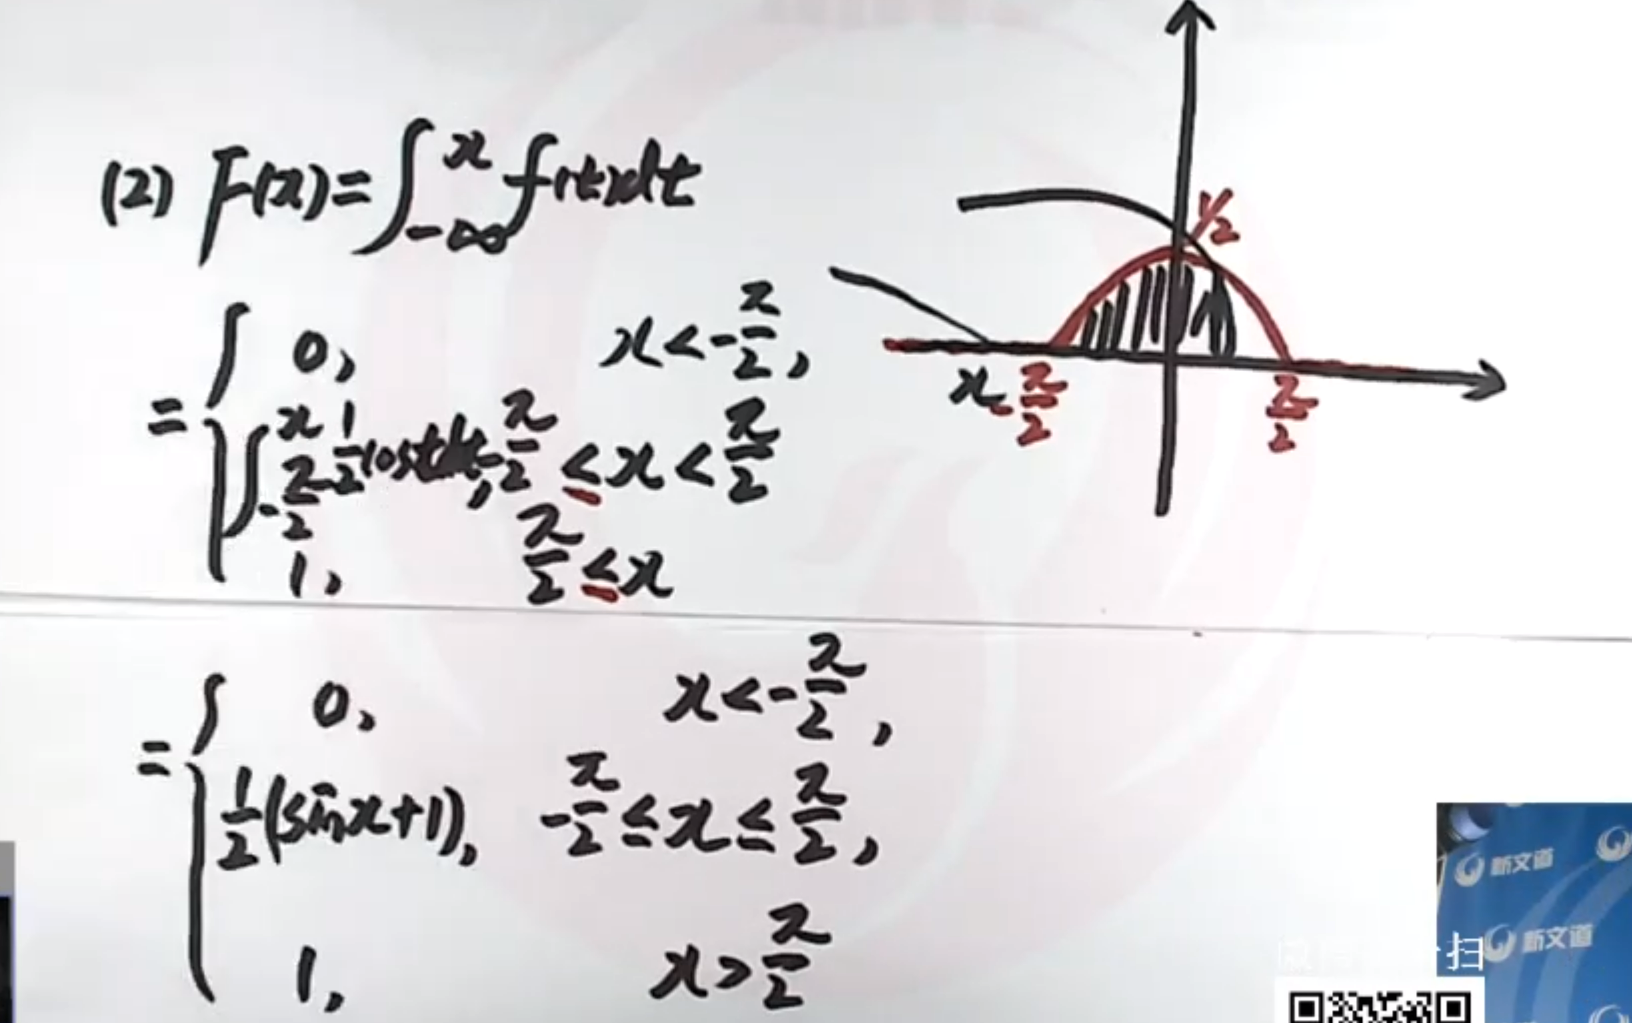 (2) F(x)=∫_{-∞}^{x} f(t)dt
= { 0, x<-π/2,
∫_{-π/2}^{x} 1/2 cost dt, -π/2 ≤ x < π/2
1, π/2 ≤ x
1/2
x -π/2 π/2
= { 0, x<-π/2,
1/2(sinx+1), -π/2 ≤ x ≤ π/2,
1, x>π/2
新文道
新文道
扫